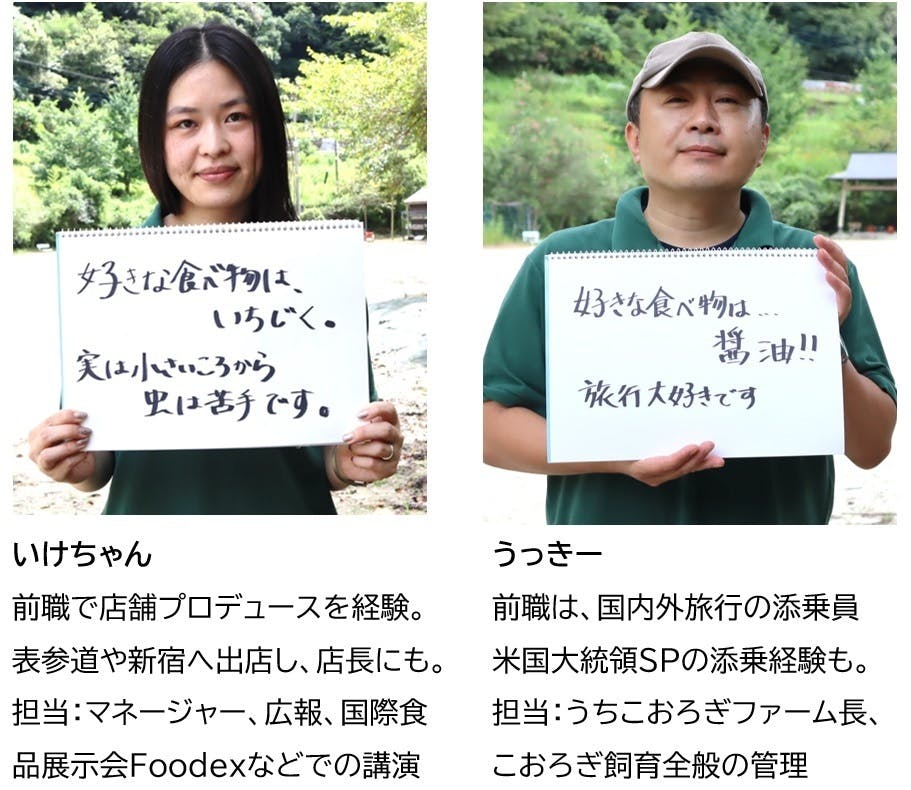 好きな食べ物は、
いちじく。
実は小さいころから
虫は苦手です。
好きな食べ物は…
醤油!!
旅行大好きです
いけちゃん
前職で店舗プロデュースを経験。
表参道や新宿へ出店し、店長にも。
担当：マネージャー、広報、国際食
品展示会Foodexなどでの講演
うっきー
前職は、国内外旅行の添乗員
米国大統領SPの添乗経験も。
担当：うちこおろぎファーム長、
こおろぎ飼育全般の管理